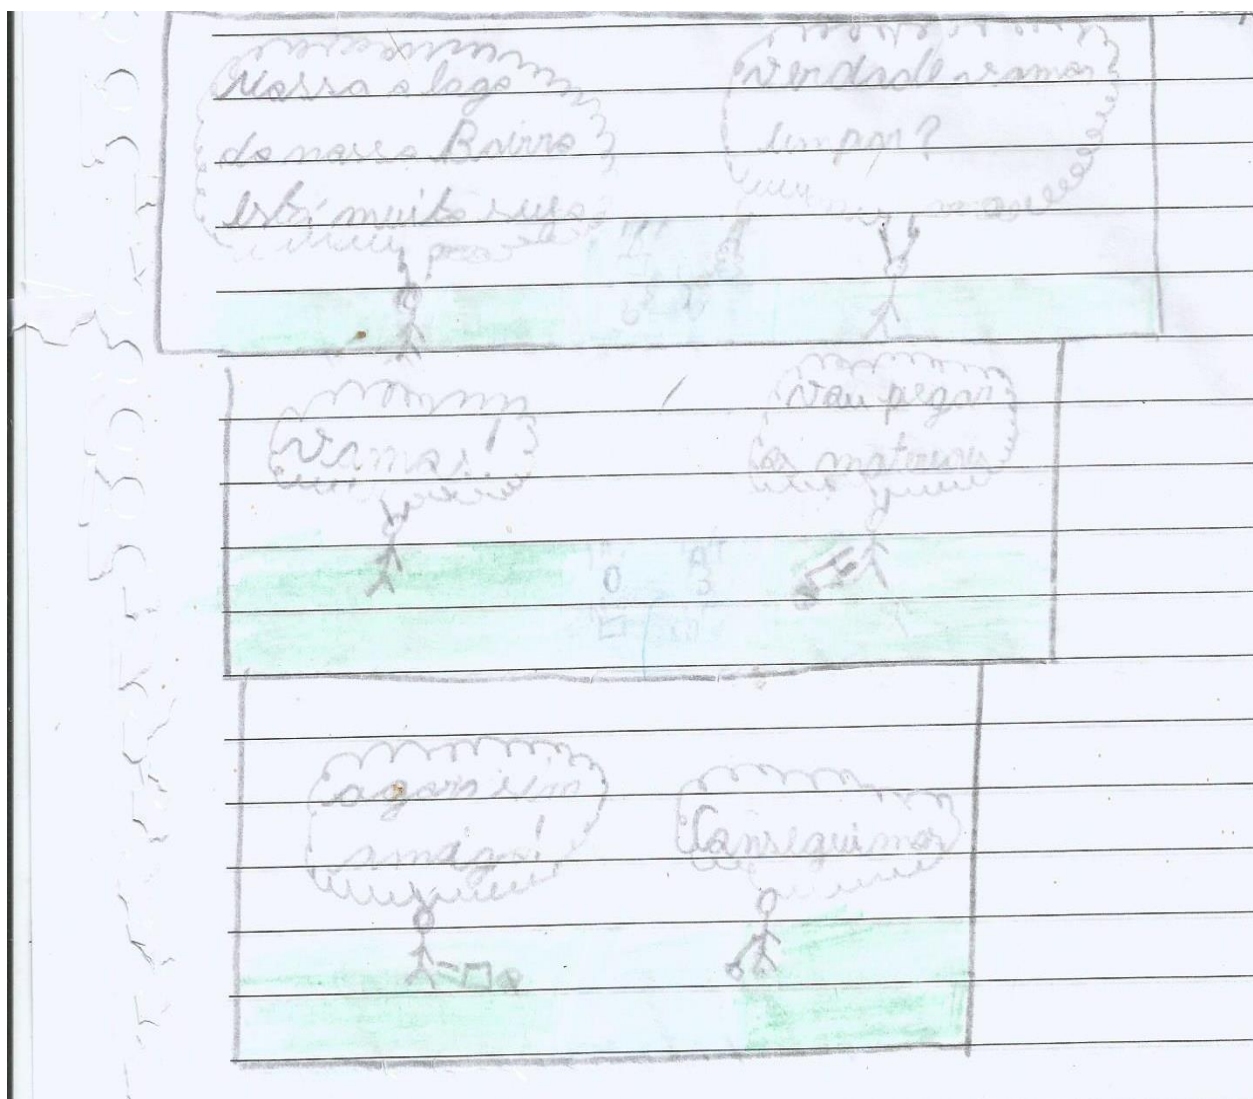 Nossa o lago
do nosso Bairro
está muito sujo
verdade vamos
limpar?
vamos!
Vou pegar
os materiais
agora sim
amigo!
Conseguimos